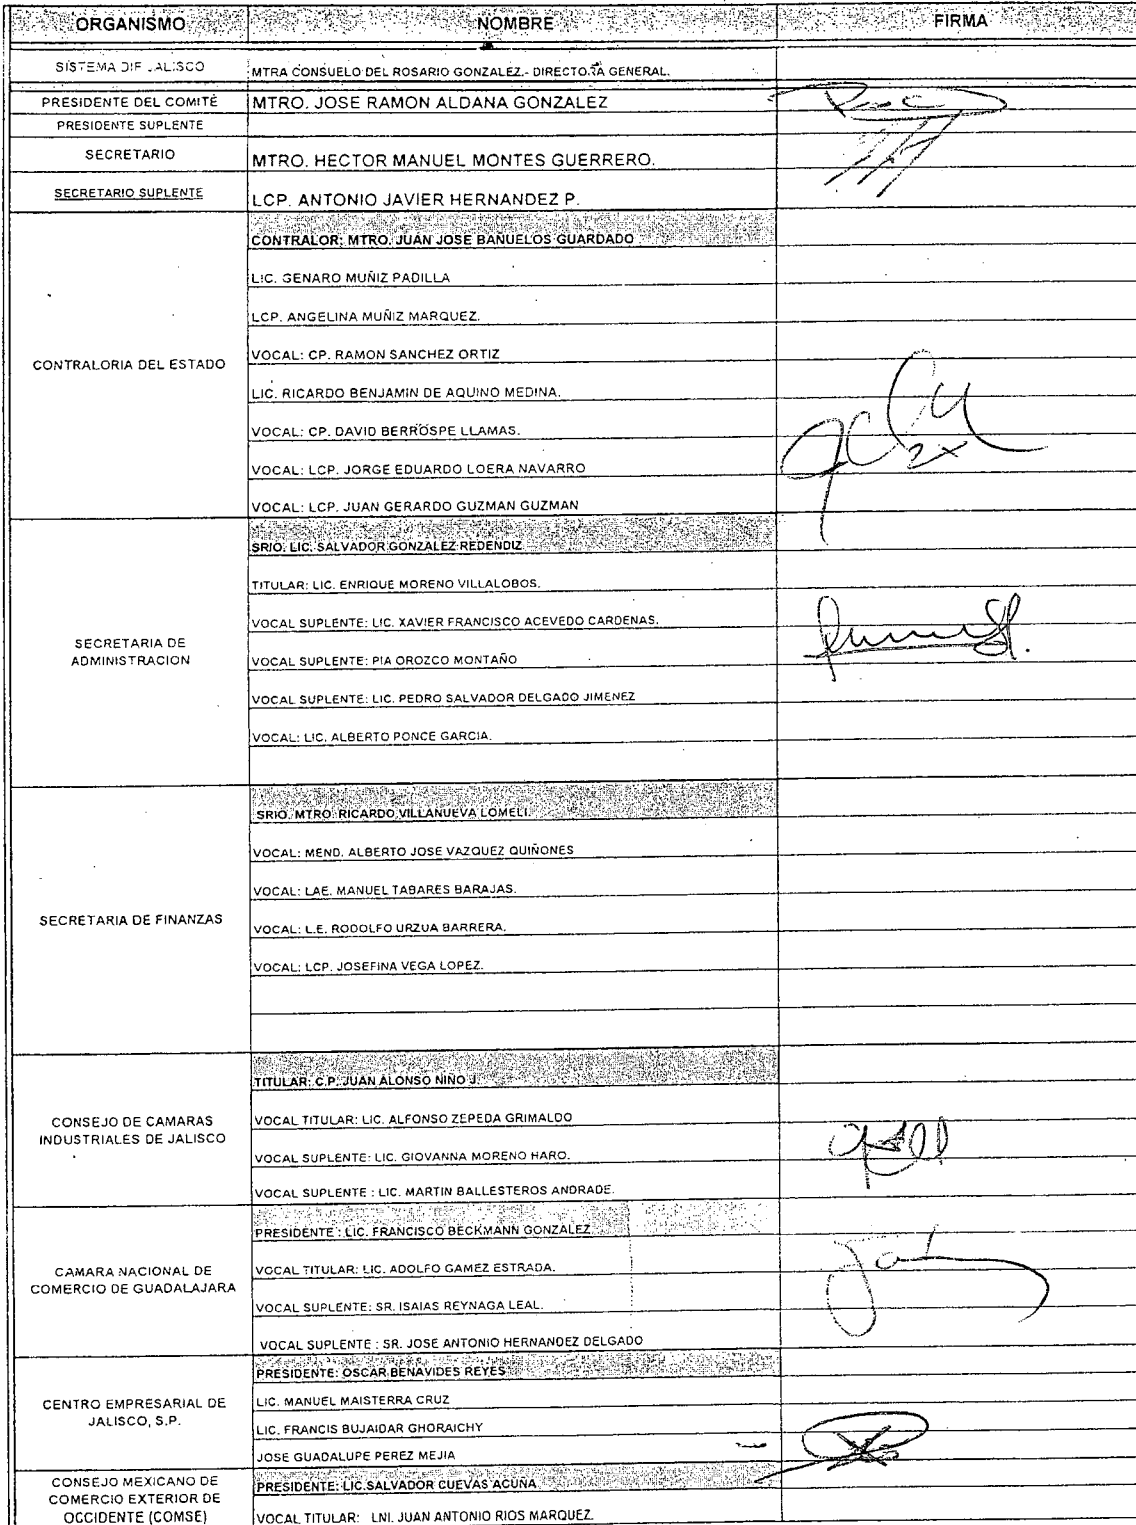 ORGANISMO NOMBRE FIRMA
SISTEMA DIF JALISCO MTRA CONSUELO DEL ROSARIO GONZALEZ.- DIRECTORA GENERAL.
PRESIDENTE DEL COMITÉ MTRO. JOSE RAMON ALDANA GONZALEZ
PRESIDENTE SUPLENTE
SECRETARIO MTRO. HECTOR MANUEL MONTES GUERRERO.
SECRETARIO SUPLENTE LCP. ANTONIO JAVIER HERNANDEZ P.
CONTRALORIA DEL ESTADO
CONTRALOR: MTRO. JUAN JOSE BAÑUELOS GUARDADO
LIC. GENARO MUÑIZ PADILLA
LCP. ANGELINA MUÑIZ MARQUEZ.
VOCAL: CP. RAMON SANCHEZ ORTIZ
LIC. RICARDO BENJAMIN DE AQUINO MEDINA.
VOCAL: CP. DAVID BERROSPE LLAMAS.
VOCAL: LCP. JORGE EDUARDO LOERA NAVARRO
VOCAL: LCP. JUAN GERARDO GUZMAN GUZMAN
SECRETARIA DE
ADMINISTRACION
SRIO. LIC. SALVADOR GONZALEZ REDENDIZ
TITULAR: LIC. ENRIQUE MORENO VILLALOBOS.
VOCAL SUPLENTE: LIC. XAVIER FRANCISCO ACEVEDO CARDENAS.
VOCAL SUPLENTE: PIA OROZCO MONTAÑO
VOCAL SUPLENTE: LIC. PEDRO SALVADOR DELGADO JIMENEZ
VOCAL: LIC. ALBERTO PONCE GARCIA.
SECRETARIA DE FINANZAS
SRIO. MTRO. RICARDO VILLANUEVA LOMELI.
VOCAL: MEND. ALBERTO JOSE VAZQUEZ QUIÑONES
VOCAL: LAE. MANUEL TABARES BARAJAS.
VOCAL: L.E. RODOLFO URZUA BARRERA.
VOCAL: LCP. JOSEFINA VEGA LOPEZ.
CONSEJO DE CAMARAS
INDUSTRIALES DE JALISCO
TITULAR: C.P. JUAN ALONSO NIÑO J.
VOCAL TITULAR: LIC. ALFONSO ZEPEDA GRIMALDO
VOCAL SUPLENTE: LIC. GIOVANNA MORENO HARO.
VOCAL SUPLENTE : LIC. MARTIN BALLESTEROS ANDRADE.
CAMARA NACIONAL DE
COMERCIO DE GUADALAJARA
PRESIDENTE : LIC. FRANCISCO BECKMANN GONZALEZ
VOCAL TITULAR: LIC. ADOLFO GAMEZ ESTRADA.
VOCAL SUPLENTE: SR. ISAIAS REYNAGA LEAL.
VOCAL SUPLENTE : SR. JOSE ANTONIO HERNANDEZ DELGADO
CENTRO EMPRESARIAL DE
JALISCO, S.P.
PRESIDENTE: OSCAR BENAVIDES REYES
LIC. MANUEL MAISTERRA CRUZ
LIC. FRANCIS BUJAIDAR GHORAICHY
JOSE GUADALUPE PEREZ MEJIA
CONSEJO MEXICANO DE
COMERCIO EXTERIOR DE
OCCIDENTE (COMSE)
PRESIDENTE: LIC. SALVADOR CUEVAS ACUÑA
VOCAL TITULAR: LNI. JUAN ANTONIO RIOS MARQUEZ.